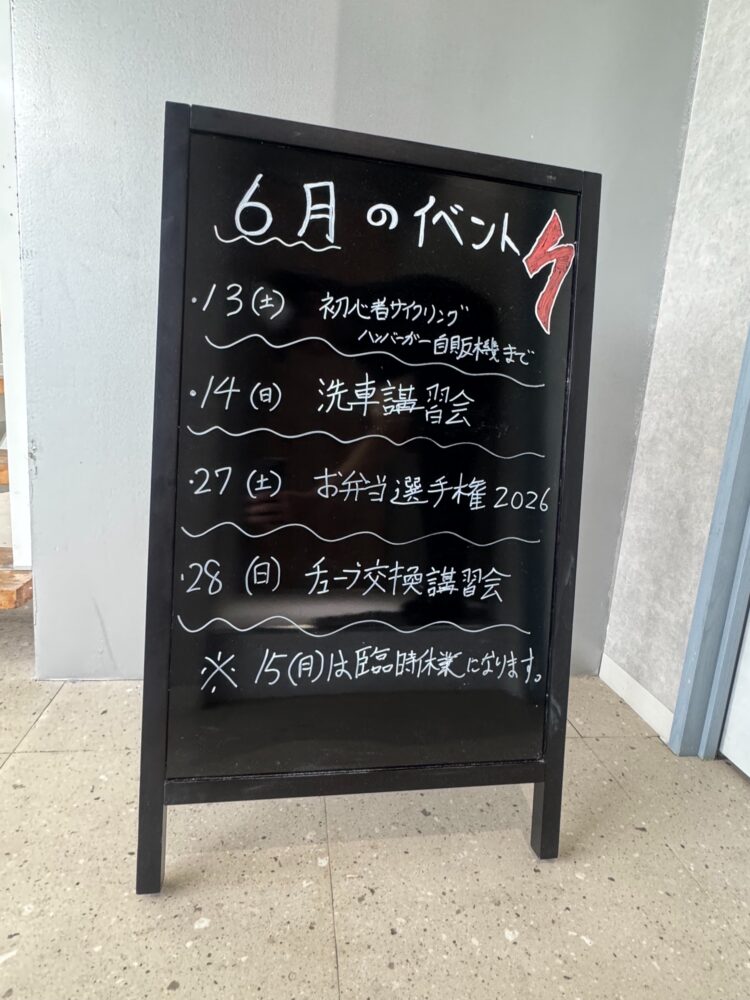 6月のイベント
・13(土) 初心者サイクリング
ハンバーガー自販機まで
・14(日) 洗車講習会
・27(土) お弁当選手権2026
・28(日) チューブ交換講習会
※ 15(月)は臨時休業になります。